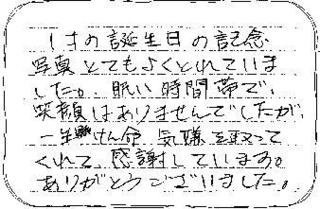 1才の誕生日の記念
写真とてもよくとれていま
した。眠い時間帯で、
笑顔はありませんでしたが、
一生けん命 気嫌を取って
くれて、感謝しています。
ありがとうございました。